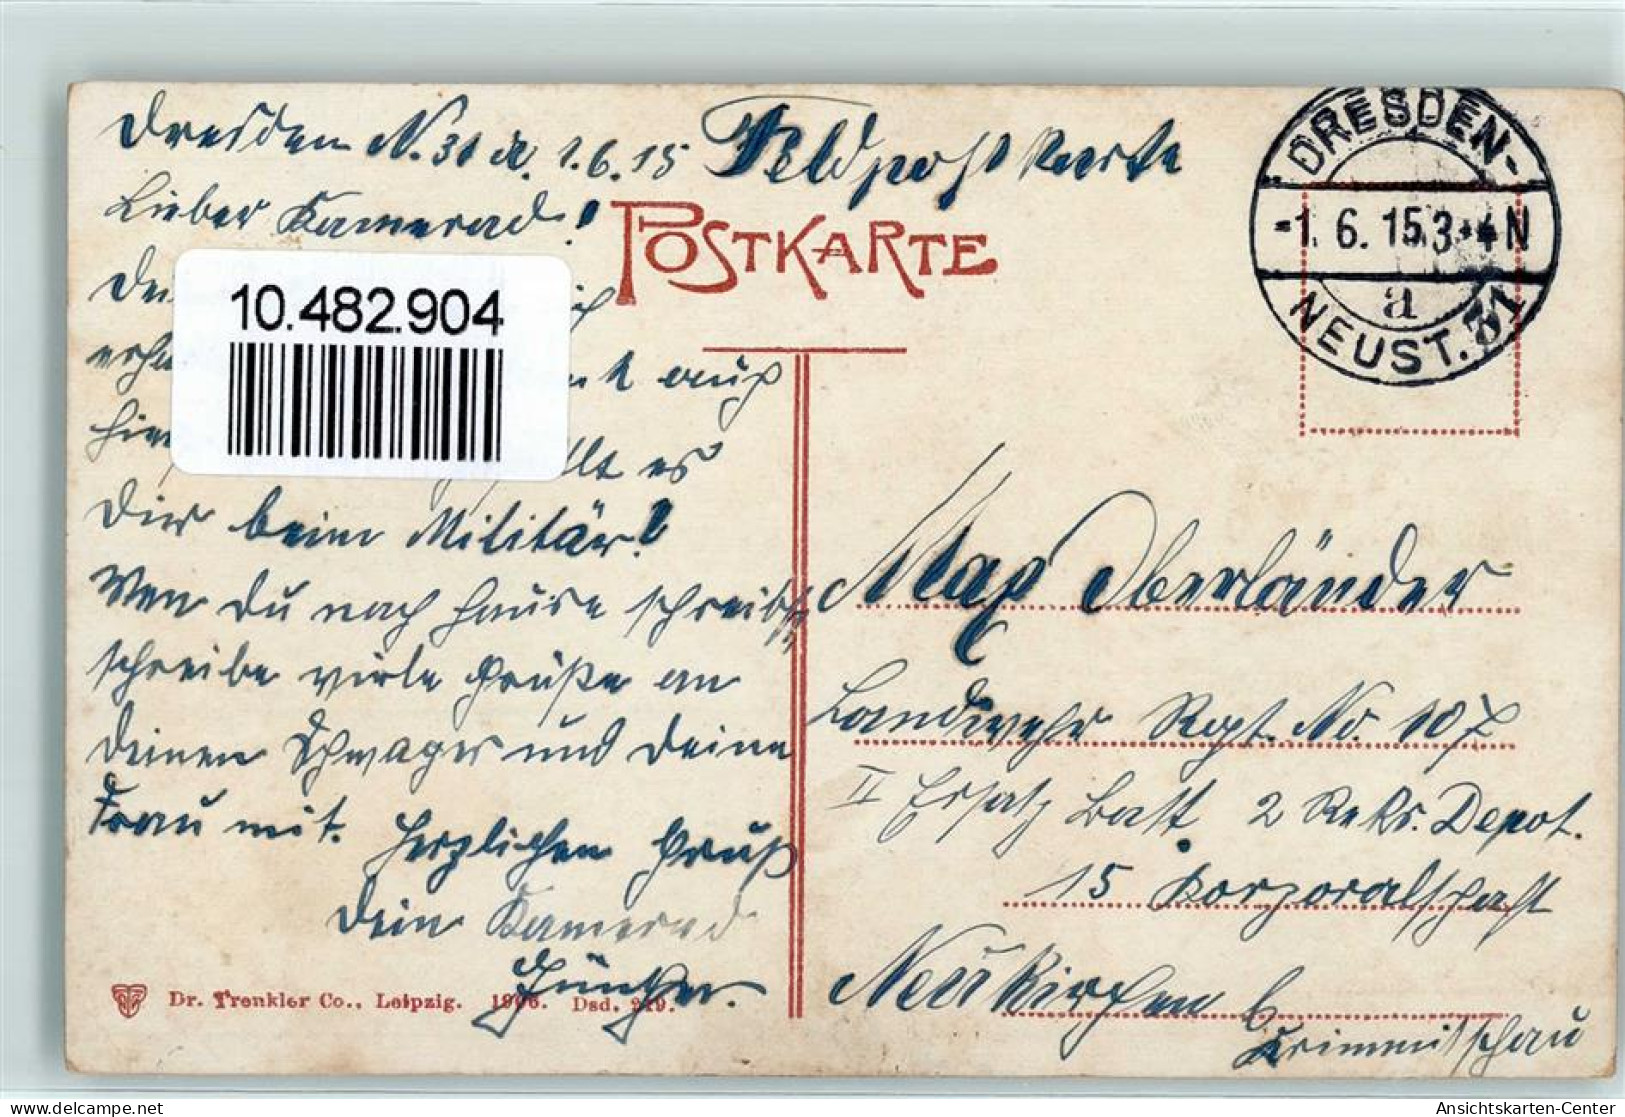 Dresden N. 31 d. 1.6.15 Feldpostkarte
Lieber Kamerad!
POSTKARTE
DRESDEN-
-1. 6. 15. 3-4 N
a
NEUST. 31
10.482.904
auch
es
Dir beim Militär!
Wen Du nach Hause schreibst
schreibe viele Grüße an
Deinen Schwager und Deine
Frau mit. Herzlichen Gruß
Dein Kamerad
Dr. Trenkler Co., Leipzig. 1906. Dsd. 219.
Max Oberländer
Landwehr Regt. No. 107
II Ersatz Batt. 2 Rekr. Depot.
15 Korporalschaft
Neukirchen b
Krimmitschau
Ansichtskarten-Center